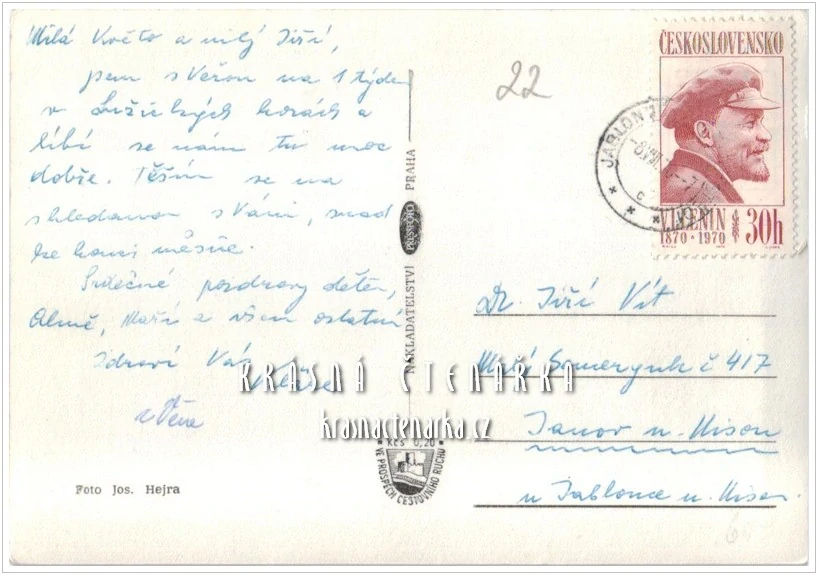 Milá Květo a milý Jiří,
jsem s Věrou na 1 týden
v Lužických horách a
líbí se nám tu moc
dobře. Těším se na
shledanou s Vámi, snad
ke konci měsíce.
Srdečné pozdravy dětem,
a všem ostatní
Zdraví Vás
a Věra
Foto Jos. Hejra
NAKLADATELSTVÍ PRESSFOTO PRAHA
KČS 0,20
VE PROSPĚCH CESTOVNÍHO RUCHU
22
ČESKOSLOVENSKO
V.I.LENIN
1870 • 1970 30h
JABLON
Dr. Jiří Vít
Malý Semerynk č 417
Janov n. Nisou
u Jablonce n. Nisou
KRÁSNÁ ČTENÁŘKA
krasnactenarka.cz